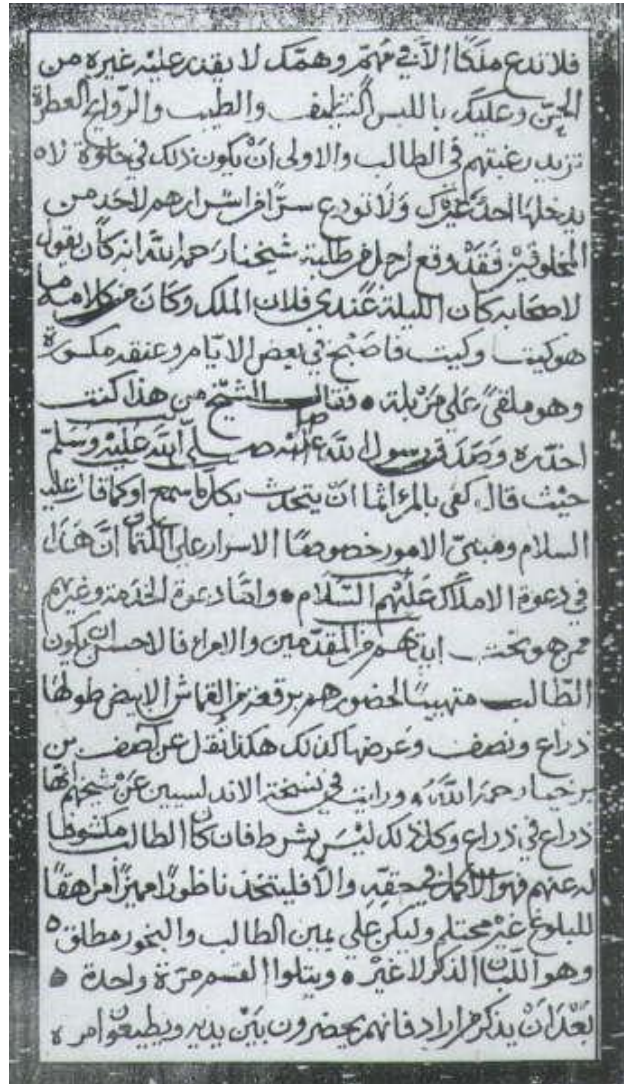 فلا تدع ملكًا الا في مهمّ وهمّك لا يقدر عليه غيره من
الجنّ وعليك باللبس النظيف والطيب والروايح العطرة
تزيد رغبتهم في الطالب والاولى أنْ يكون ذلك في خلوة لا
يدخلها احدٌ غيرك وَلَا تودع سرًّا من اسرارهم لاحَد من
المخلوقين فَقَدْ وقع لرجل من طلبة شيخنا رَحمه الله انه كَان يقول
لاصحابه كان الليلة عندي فلان الملك وكَانَ من كلامه ما
هو كيت وكيت فاصْبح في بعض الايّام وعنقه مكسورة
وهو ملقىً عَلي مَزْبلة ٠ فقال الشيخ من هذا كنت
احذّره وصَدَق رسول الله صلّي الله عَلَيْه وَسَلّم
حيْث قال كفى بالمرء اثمًا انْ يتحدث بكلّ ما سمع او كما قال عليه
السلام ومبنىّ الامور خصوصًا الاسرار علي الكتمان انَّ هَذا
في دعوة الاملاك عَلَيْهم السَّلام ٠ وامّا دعوة الخدمة وغيرهم
ممن هو تحت ايديهم من المقدّمين والامراء فالاحسن ان يكون
الطّالب متهيئا لحضورهم برقعة من القماش الابيض طولها
ذراع ونصف وعَرضها كذلك هكذا نقل عن آصف بن
برخيا رحمه الله ورايت في نسخة الاندلسيين عَنْ شيخهم انّها
ذراع في ذراع وكل ذلك ليْسَ بشرط فان كان الطالب مكشوفا
له عنهم فهو الاكمل في حقّهِ والّا فليتخذ ناظورًا مميزًا مراهقًا
للبلوغ غيْر محتلم وليكن علي يمين الطالب والبخور مطلق ٥
وهو اللّبان الذكر لا غيْر ٠ ويتلوا القسم مرّة واحدة ٥
بَعْدَ أنْ يذكر ما اراد فانهم يحضرون بَيْن يديه ويطيعون امره